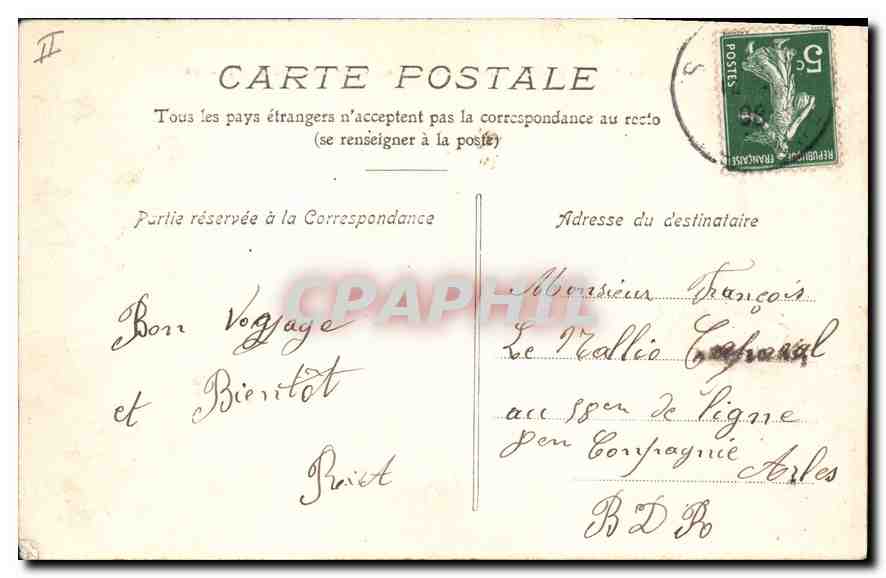 II
CARTE POSTALE
Tous les pays étrangers n'acceptent pas la correspondance au recto
(se renseigner à la poste)
Partie réservée à la Correspondance
Bon Voyage
et Bientôt
Adresse du destinataire
Monsieur François
Le Mallio Caporal
au 58en de ligne
8en Conpagnie
Arles
B D R
5c
POSTES
REPUBLIQUE FRANÇAISE
CPAPHIL